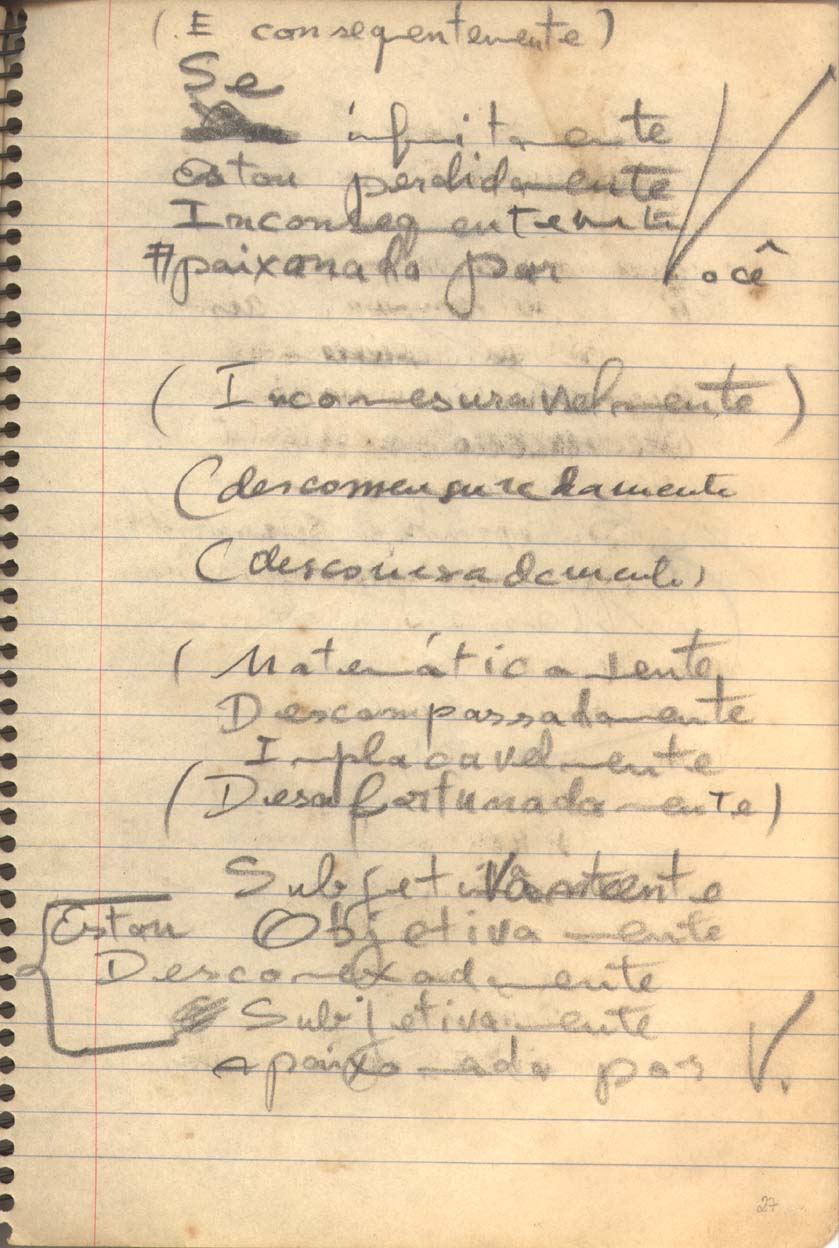 (E conseqentemente)
Se
infinitamente
Estou perdidamente
Inconseqentemente
Apaixonado por Você
(Incomesuravelmente)
(descomensuradamente
(desconexadamente)
(Matemáticamente
Descompassadamente
Implacavelmente
(Desafortunadamente)
Subjetivamente
Estou Objetivamente
Desconexadmente
Subjetivamente
Apaixonado por V.
27